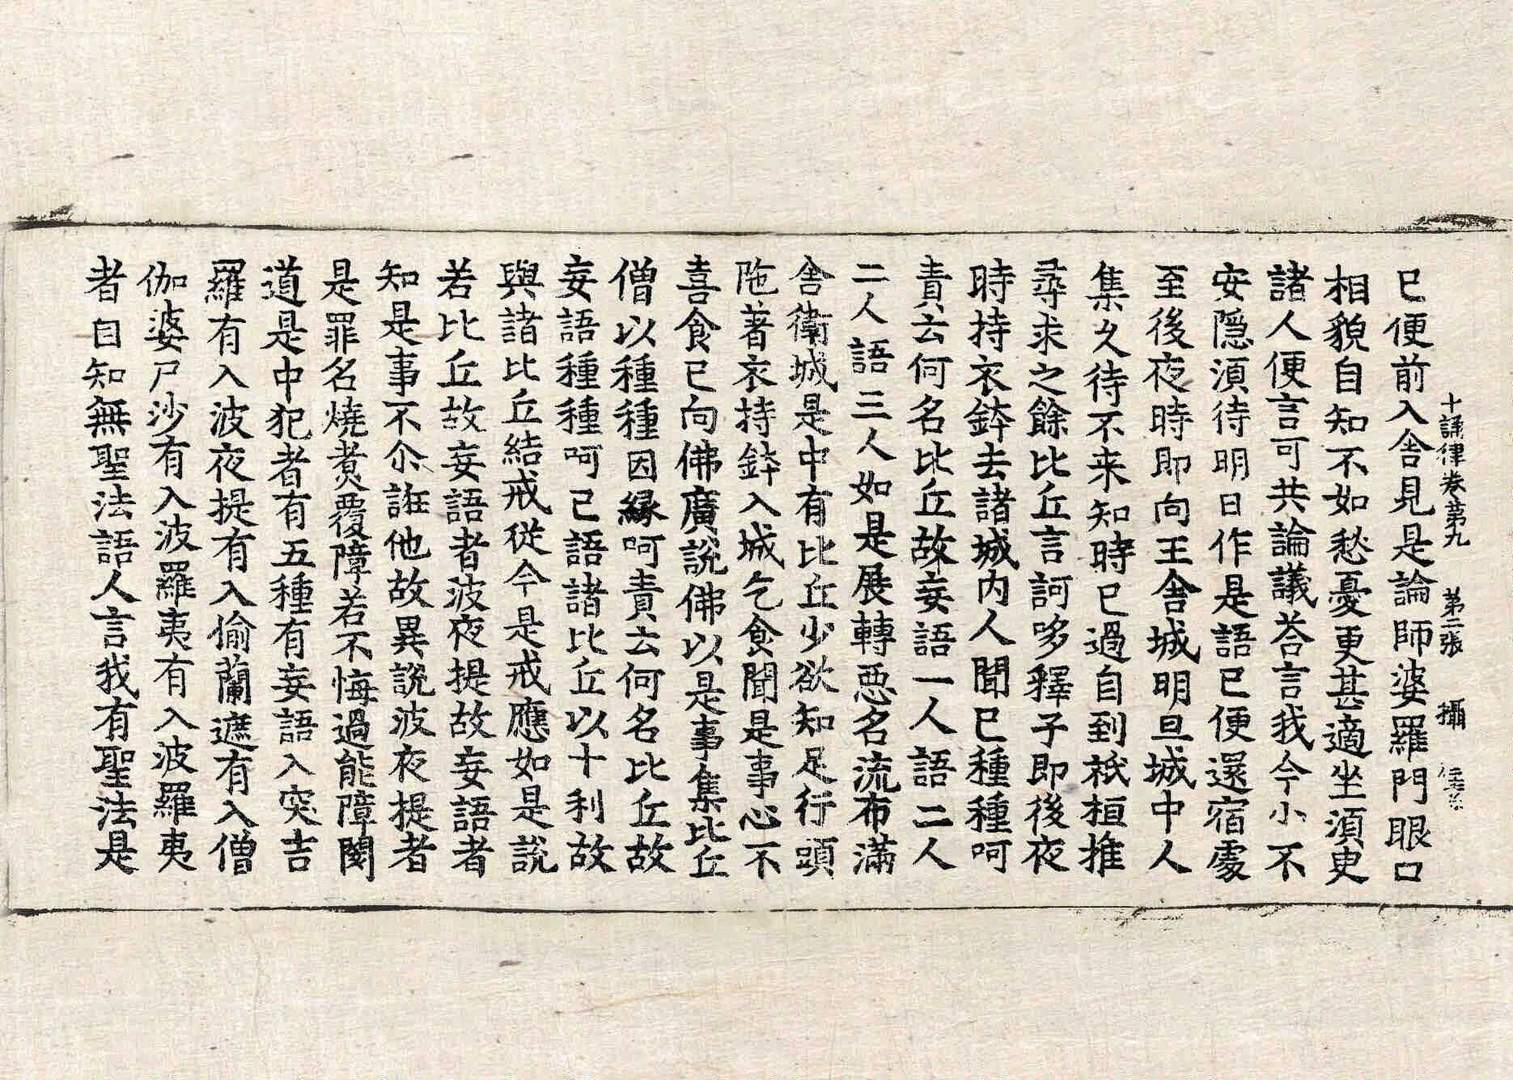 十誦律卷第九　第二張　攝
已便前入舍見是論師婆羅門眼口
相貌自知不如愁憂更甚適坐須臾
諸人便言可共論議荅言我今小不
安隱須待明日作是語已便還宿處
至後夜時即向王舍城明旦城中人
集久待不来知時已過自到祇桓推
尋求之餘比丘言訶哆釋子即後夜
時持衣鉢去諸城內人聞已種種呵
責云何名比丘故妄語一人語二人
二人語三人如是展轉惡名流布滿
舍衛城是中有比丘少欲知足行頭
陁著衣持鉢入城乞食聞是事心不
喜食已向佛廣說佛以是事集比丘
僧以種種因緣呵責云何名比丘故
妄語種種呵已語諸比丘以十利故
與諸比丘結戒從今是戒應如是說
若比丘故妄語者波夜提故妄語者
知是事不尒誑他故異說波夜提者
是罪名燒煑覆障若不悔過能障閡
道是中犯者有五種有妄語入突吉
羅有入波夜提有入偷蘭遮有入僧
伽婆尸沙有入波羅夷有入波羅夷
者自知無聖法語人言我有聖法是